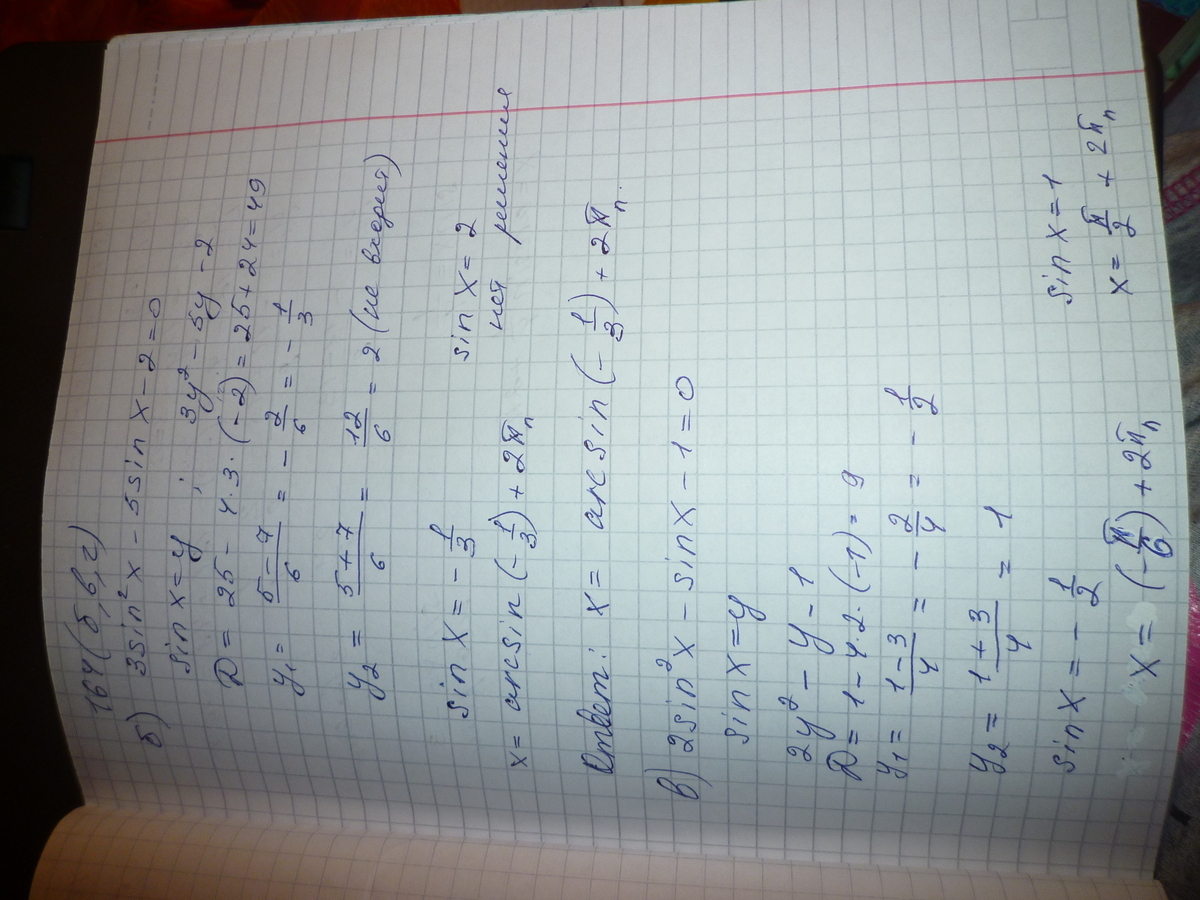 164 (б, в, г)
б) 3sin² x - 5sin x - 2 = 0
sin x = y ; 3y² - 5y - 2
D = 25 - 4·3·(-2) = 25 + 24 = 49
y₁ = (5 - 7)/6 = - 2/6 = - 1/3
y₂ = (5 + 7)/6 = 12/6 = 2 (не входит)
sin x = - 1/3 sin x = 2
x = arcsin (- 1/3) + 2πn нет решения
Ответ: x = arcsin (- 1/3) + 2πn.
в) 2sin² x - sin x - 1 = 0
sin x = y
2y² - y - 1
D = 1 - 4·2·(-1) = 9
y₁ = (1 - 3)/4 = - 2/4 = - 1/2
y₂ = (1 + 3)/4 = 1
sin x = - 1/2 sin x = 1
x = (- π/6) + 2πn x = π/2 + 2πn